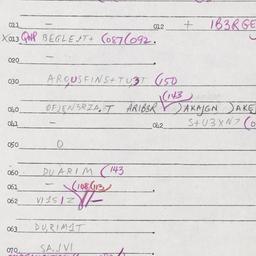 011 – 012 + 1B3RGE
X013 QHP BEGLEJT+ (087(092.
020 –
030 ARQUSFINS+TU3T (150
(143
040 OFJENSRZA.T ARIBSR )AKAJGN )AKE
041 – 042 S+U3XN7 (0
050 0
060 DUARIM (143
061 – (108(113
062 V1JS1Z
063 DU,RIM1T
070 SA,JVI